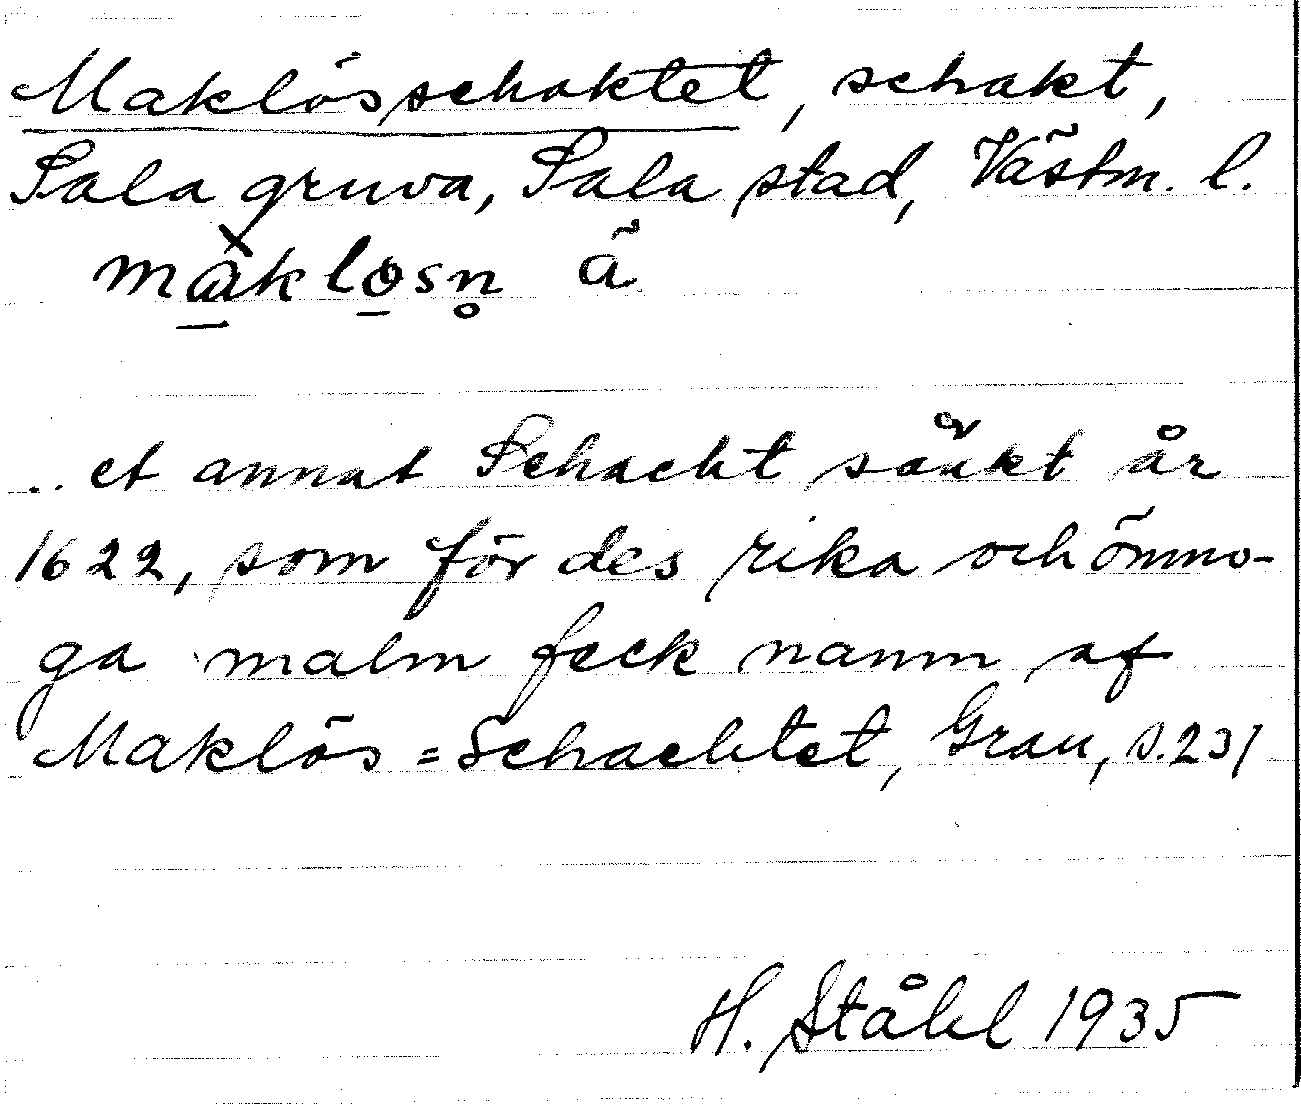 Maklösschaktet, schakt,
Sala gruva, Sala stad, Västm. l.
ä
.. et annat Schacht sänkt år
1622, som för des rika och ömno-
ga malm feck namn af
Maklös=Schachtet, Grau, s. 231
H. Ståhl 1935